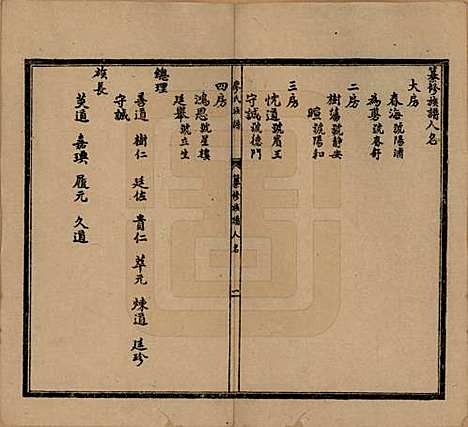 纂修族譜人名
大房
春海號陽浦
為鸎號春舒
二房
樹藩號靜安
暄號陽和
三房
忱道號賓王
守誠號德門
四房
鴻恩號星樓
廷舉號立生
氏族譜
纂修族譜人名
二
總理
善道 樹仁 廷佐 貴仁 萃元 煉道 廷珍
守誠
族長
英道 嘉璵 履元 久道